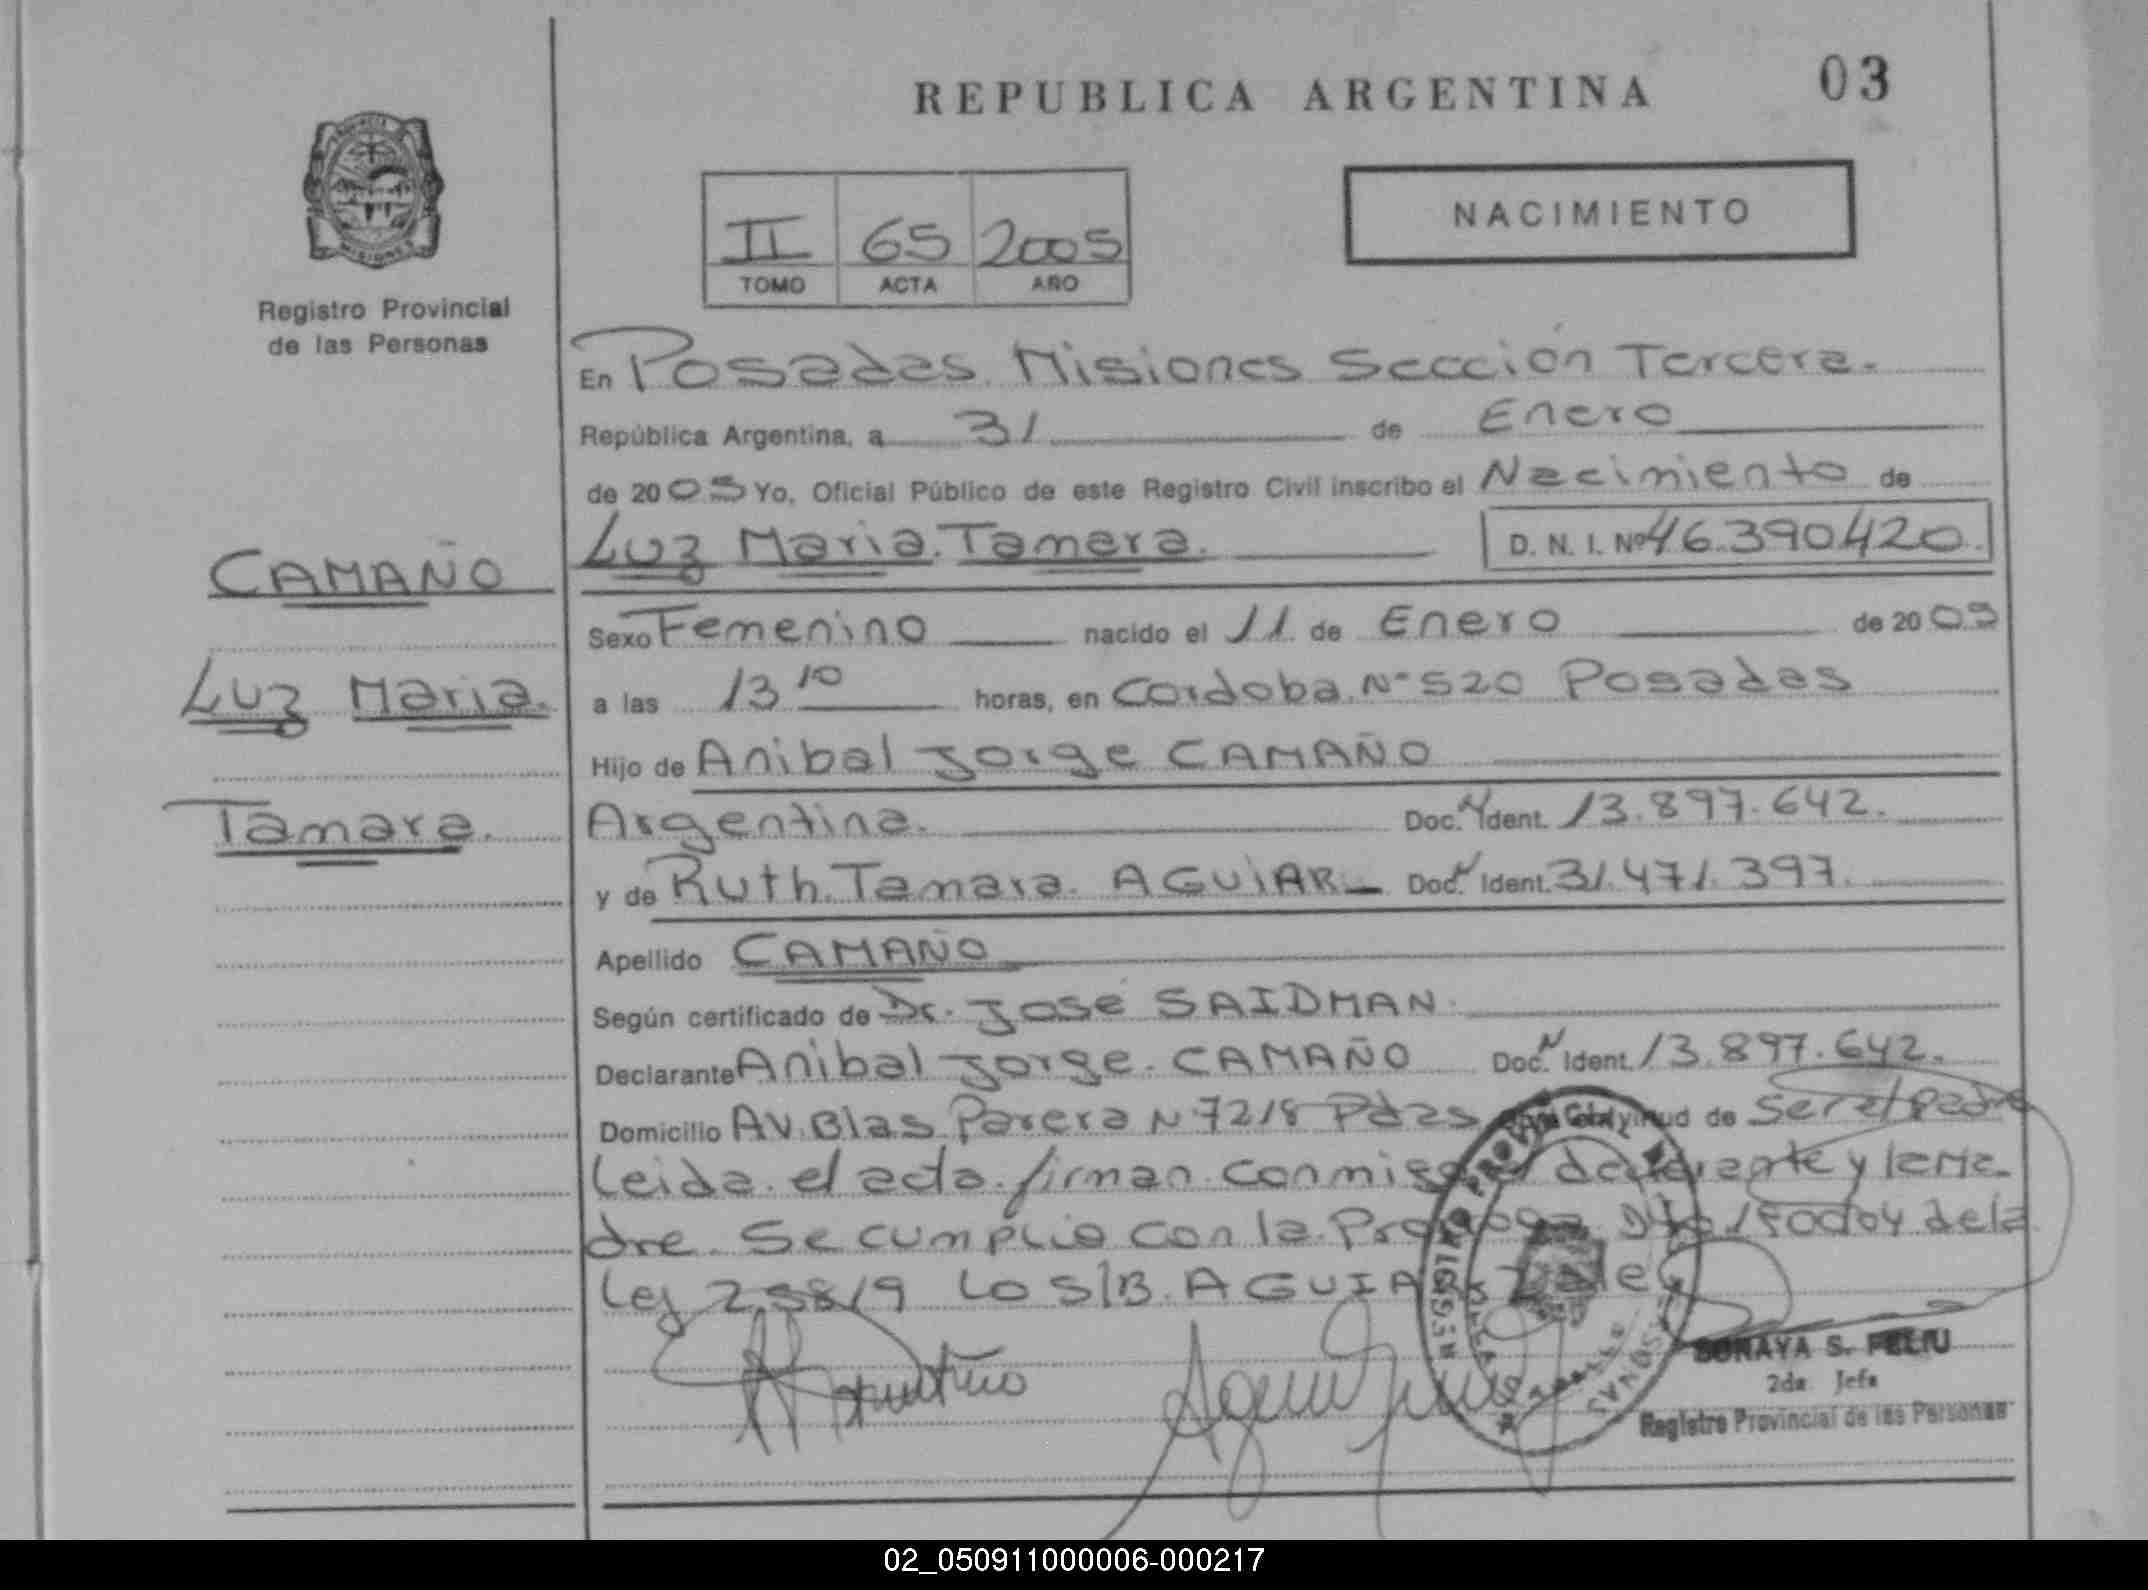 REPUBLICA ARGENTINA 03
PROVINCIA DE
MISIONES
Registro Provincial
de las Personas
NACIMIENTO
II 65 2005
TOMO ACTA AÑO
En Posadas. Misiones Sección Tercera.
República Argentina, a 31 de Enero
de 2005 Yo, Oficial Público de este Registro Civil inscribo el Nacimiento de
Luz Maria. Tamara. D. N. I. Nº 46.390.420.
CAMAÑO
Luz Maria.
Tamara.
Sexo Femenino nacido el 11 de Enero de 2005
a las 13 10 horas, en Cordoba. Nº 520 Posadas
Hijo de Anibal Jorge CAMAÑO
Argentina. Doc. N Ident. 13.897.642.
y de Ruth. Tamara. AGUIAR Doc. N Ident. 31.471.397.
Apellido CAMAÑO
Según certificado de Dr. José SAIDMAN
Declarante Anibal Jorge. CAMAÑO Doc. N Ident. 13.897.642.
Domicilio Av. Blas Parera N 7218 Pdas en virtud de ser el padre
Leida. el acta. firman. conmigo el declarante y la Ma-
dre. Se cumplio con la. Prorroga. Dto 1500/04 de la
Ley 25819 Lo S/B. AGUIAR Vale
SORAYA S. FELIU
2da. Jefa
Registro Provincial de las Personas
02_050911000006-000217